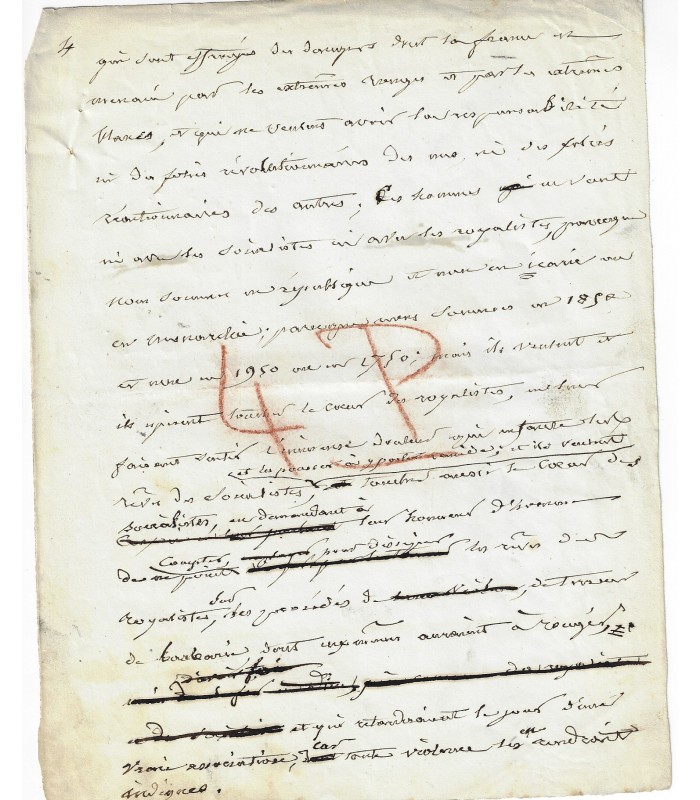 4
qui sont effrayés des dangers dont la france est
menacée par les extrêmes rouges et par les extrêmes
blancs, et qui ne veulent avoir la responsabilité
ni des folies révolutionnaires des uns, ni des folies
réactionnaires des autres; Ces hommes ne vont
ni avec les socialistes ni avec les royalistes, parceque
nous sommes en république et non en icarie ou
en monarchie; parceque nous sommes en 1850
et non en 1950 ou en 1750; mais ils veulent et
ils espèrent toucher le cœur des royalistes, en leur
faisant sentir l'immense douleur qui enfante les
et les pousser à y porter remède; et ils veulent
rêves des socialistes, toucher aussi le cœur des
socialistes, en demandant à
leur honneur d'hommes
de ne point compter, pour éloigner les rêves des
royalistes, sur des procédés de de terreur
de barbarie dont eux-mêmes auraient à rougir,
et qui retarderaient le jour d'une
vraie association, car toute violence les en rendrait
indignes.
4 P